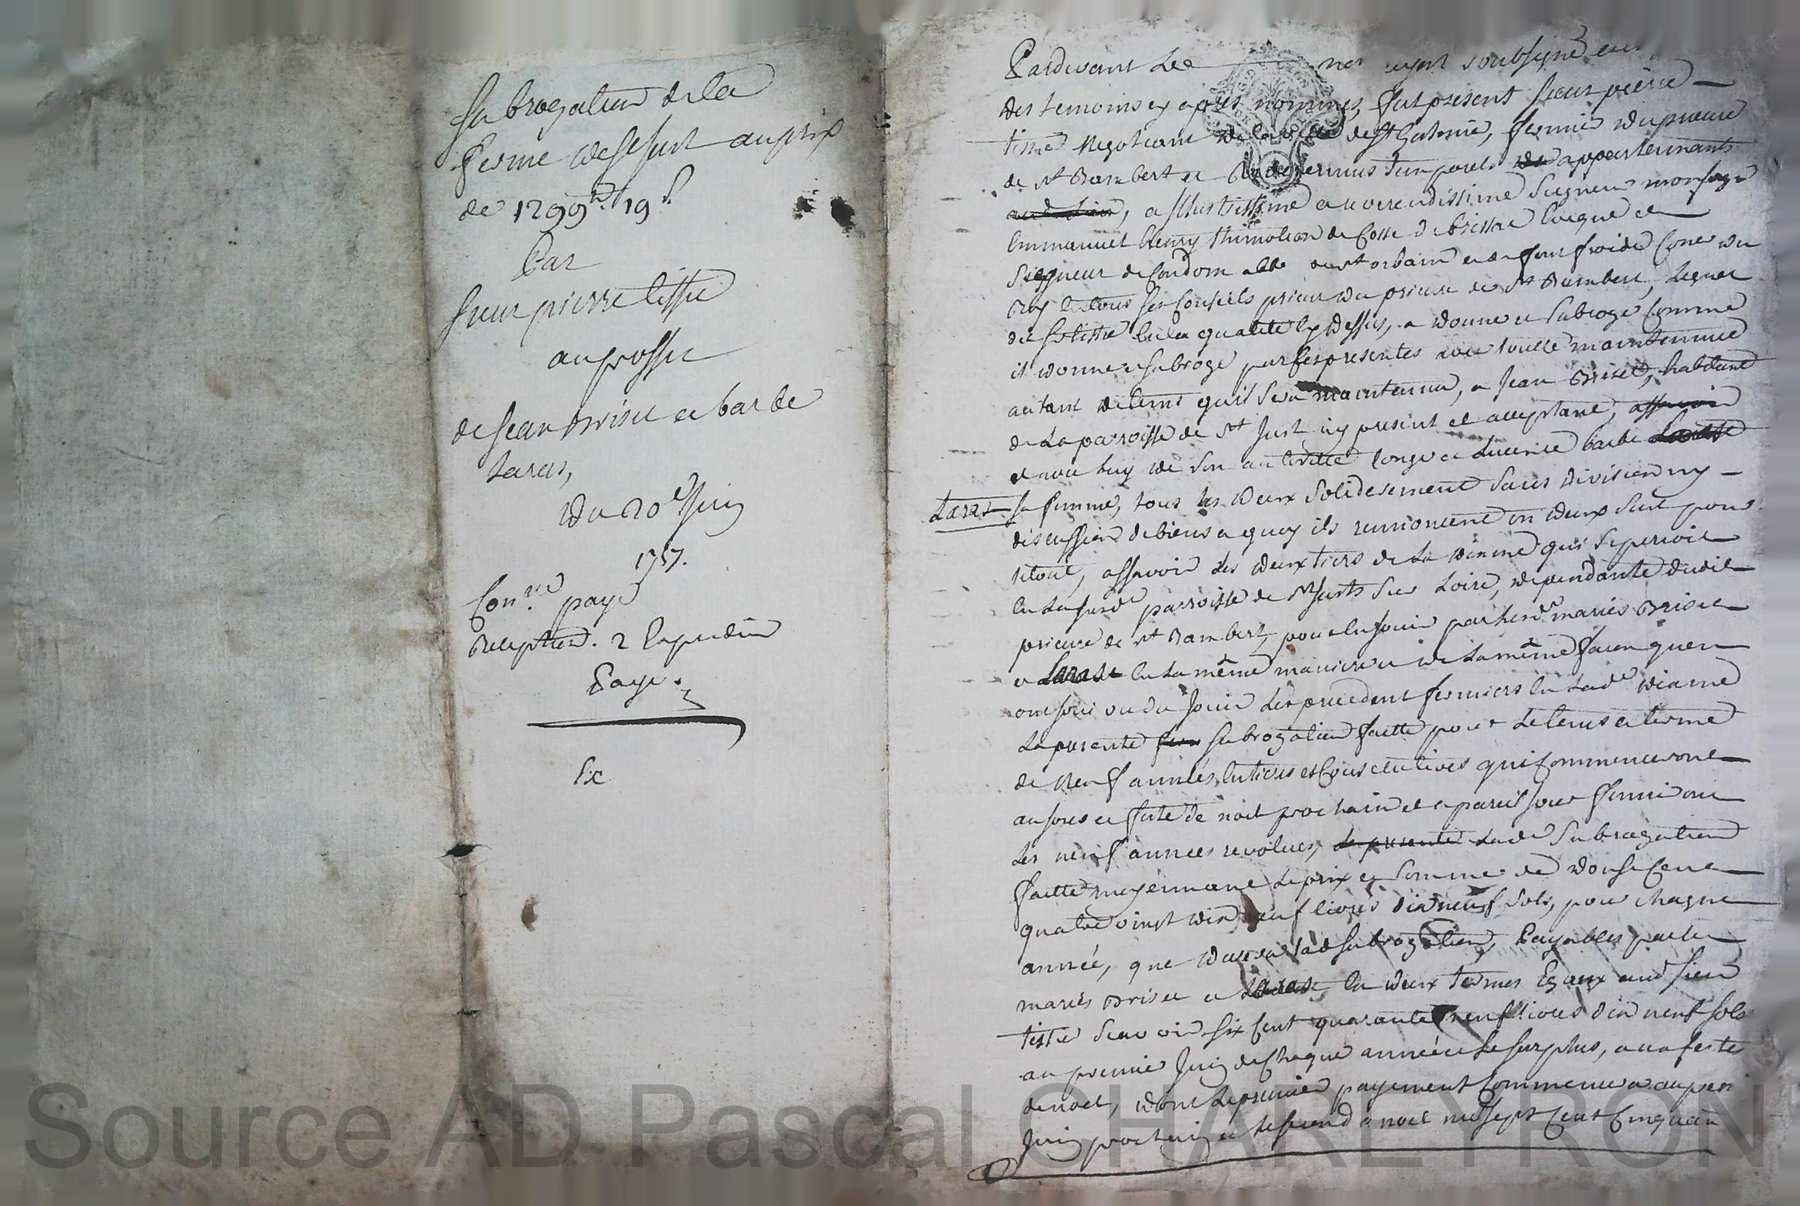 Subrogation de la
ferme de St Just au prix
de 1299# 19s
Par
Sieur pierre tissu
au proffit
de Jean Brisu et barbe
Laras,
Du 20e Juin
1757.
Conlle payé
Reception. 2 Expedion
Payé.
Ex
Pardevant Le soubsigné
des temoins cy apres nommés, fut present sieur pierre
negotiant de la de St fermie du prieuré
de St Rambert et appartenants
, a Illustrissime et reverendissime Seigneur monsegr
Emmanuel henry thimoleon de Cosse de brissac Eveque et
Seigneur de Condom abbé de St urbain et de fonfroide Coner du
Roy En tous ses Conseils prieur du prieuré de St Rambert, Lequel
En la qualité Cy Dessus, a donné et subrogé Comme
il donne et subroge par ses presentes avec toutte maintenüe
autant de tems qu'il sera maintenu, a Jean Brisu, habitant
de La parroisse de St Just icy present et acceptant,
et avec luy de son authorité Congé et Licence barbe
Laras sa femme, tous les deux solidairement sans division ny
discussion de biens a quoy ils renoncent un deux seul pour
le tout, assavoir les deux tiers de La dixme qui se perçoit
En La susde parroisse de St Just Sur Loire, dependante dudit
prieuré de St Rambert, pour En Jouir par lesd mariés Brisu
et Laras En La même maniere et de La même façon qu'en
ont Joui ou du Jouir Les precedent fermiers En Lade dixme
La presente subrogation faitte pour Le tems et terme
de neuf années Entieres et Consecutives qui Commenceront
au jour et feste de noel prochain et a pareil jour finiront
Les neuf années revolues, Lade Subrogation
faitte moyennant Le prix et somme de douse Cent
quatre vingt dix neuf livres dix neuf sols, pour chaque
année, que durera lad subrogation, Payables par les
mariés Brisu et Laras En deux termes Egaux aud sieur
Scavoir six Cent quarante neuf livres dix neuf sols
au premier Juin de Chaque année et le surplus, a la feste
de noel, dont Le premier payement Commencera au per
Juin prochain, et le second a noel mil sept Cent Cinquan
Source AD Pascal CHAREYRON